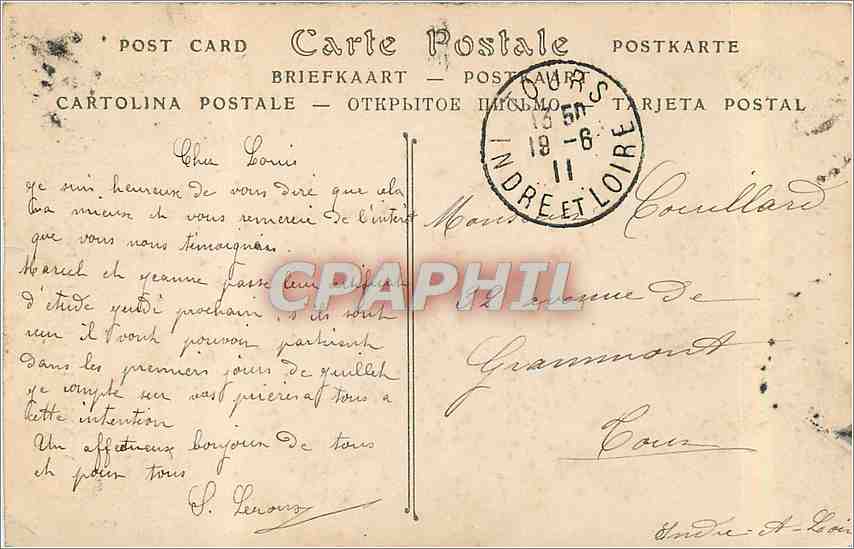 POST CARD Carte Postale POSTKARTE
BRIEFKAART — POSTKAART
CARTOLINA POSTALE — ОТКРЫТОЕ ПИСЬМО — TARJETA POSTAL
TOURS
13 50
19 -6
11
INDRE ET LOIRE
Cher Louis
je suis heureux de vous dire que cela
va mieux et vous remercie de l'intérêt
que vous nous témoignez.
Marcel et Jeanne passe leur certificat
d'étude jeudi prochain s'ils sont
reçu il vont pouvoir partirent
dans les premiers jours de juillet
je compte sur vos prières a tous a
cette intention
Un affectueux bonjour de tous
et pour tous
S. Leroux
Monsieur Couillard
52 avenue de
Grammont
Tours
Indre-et-Loir
CPAPHIL